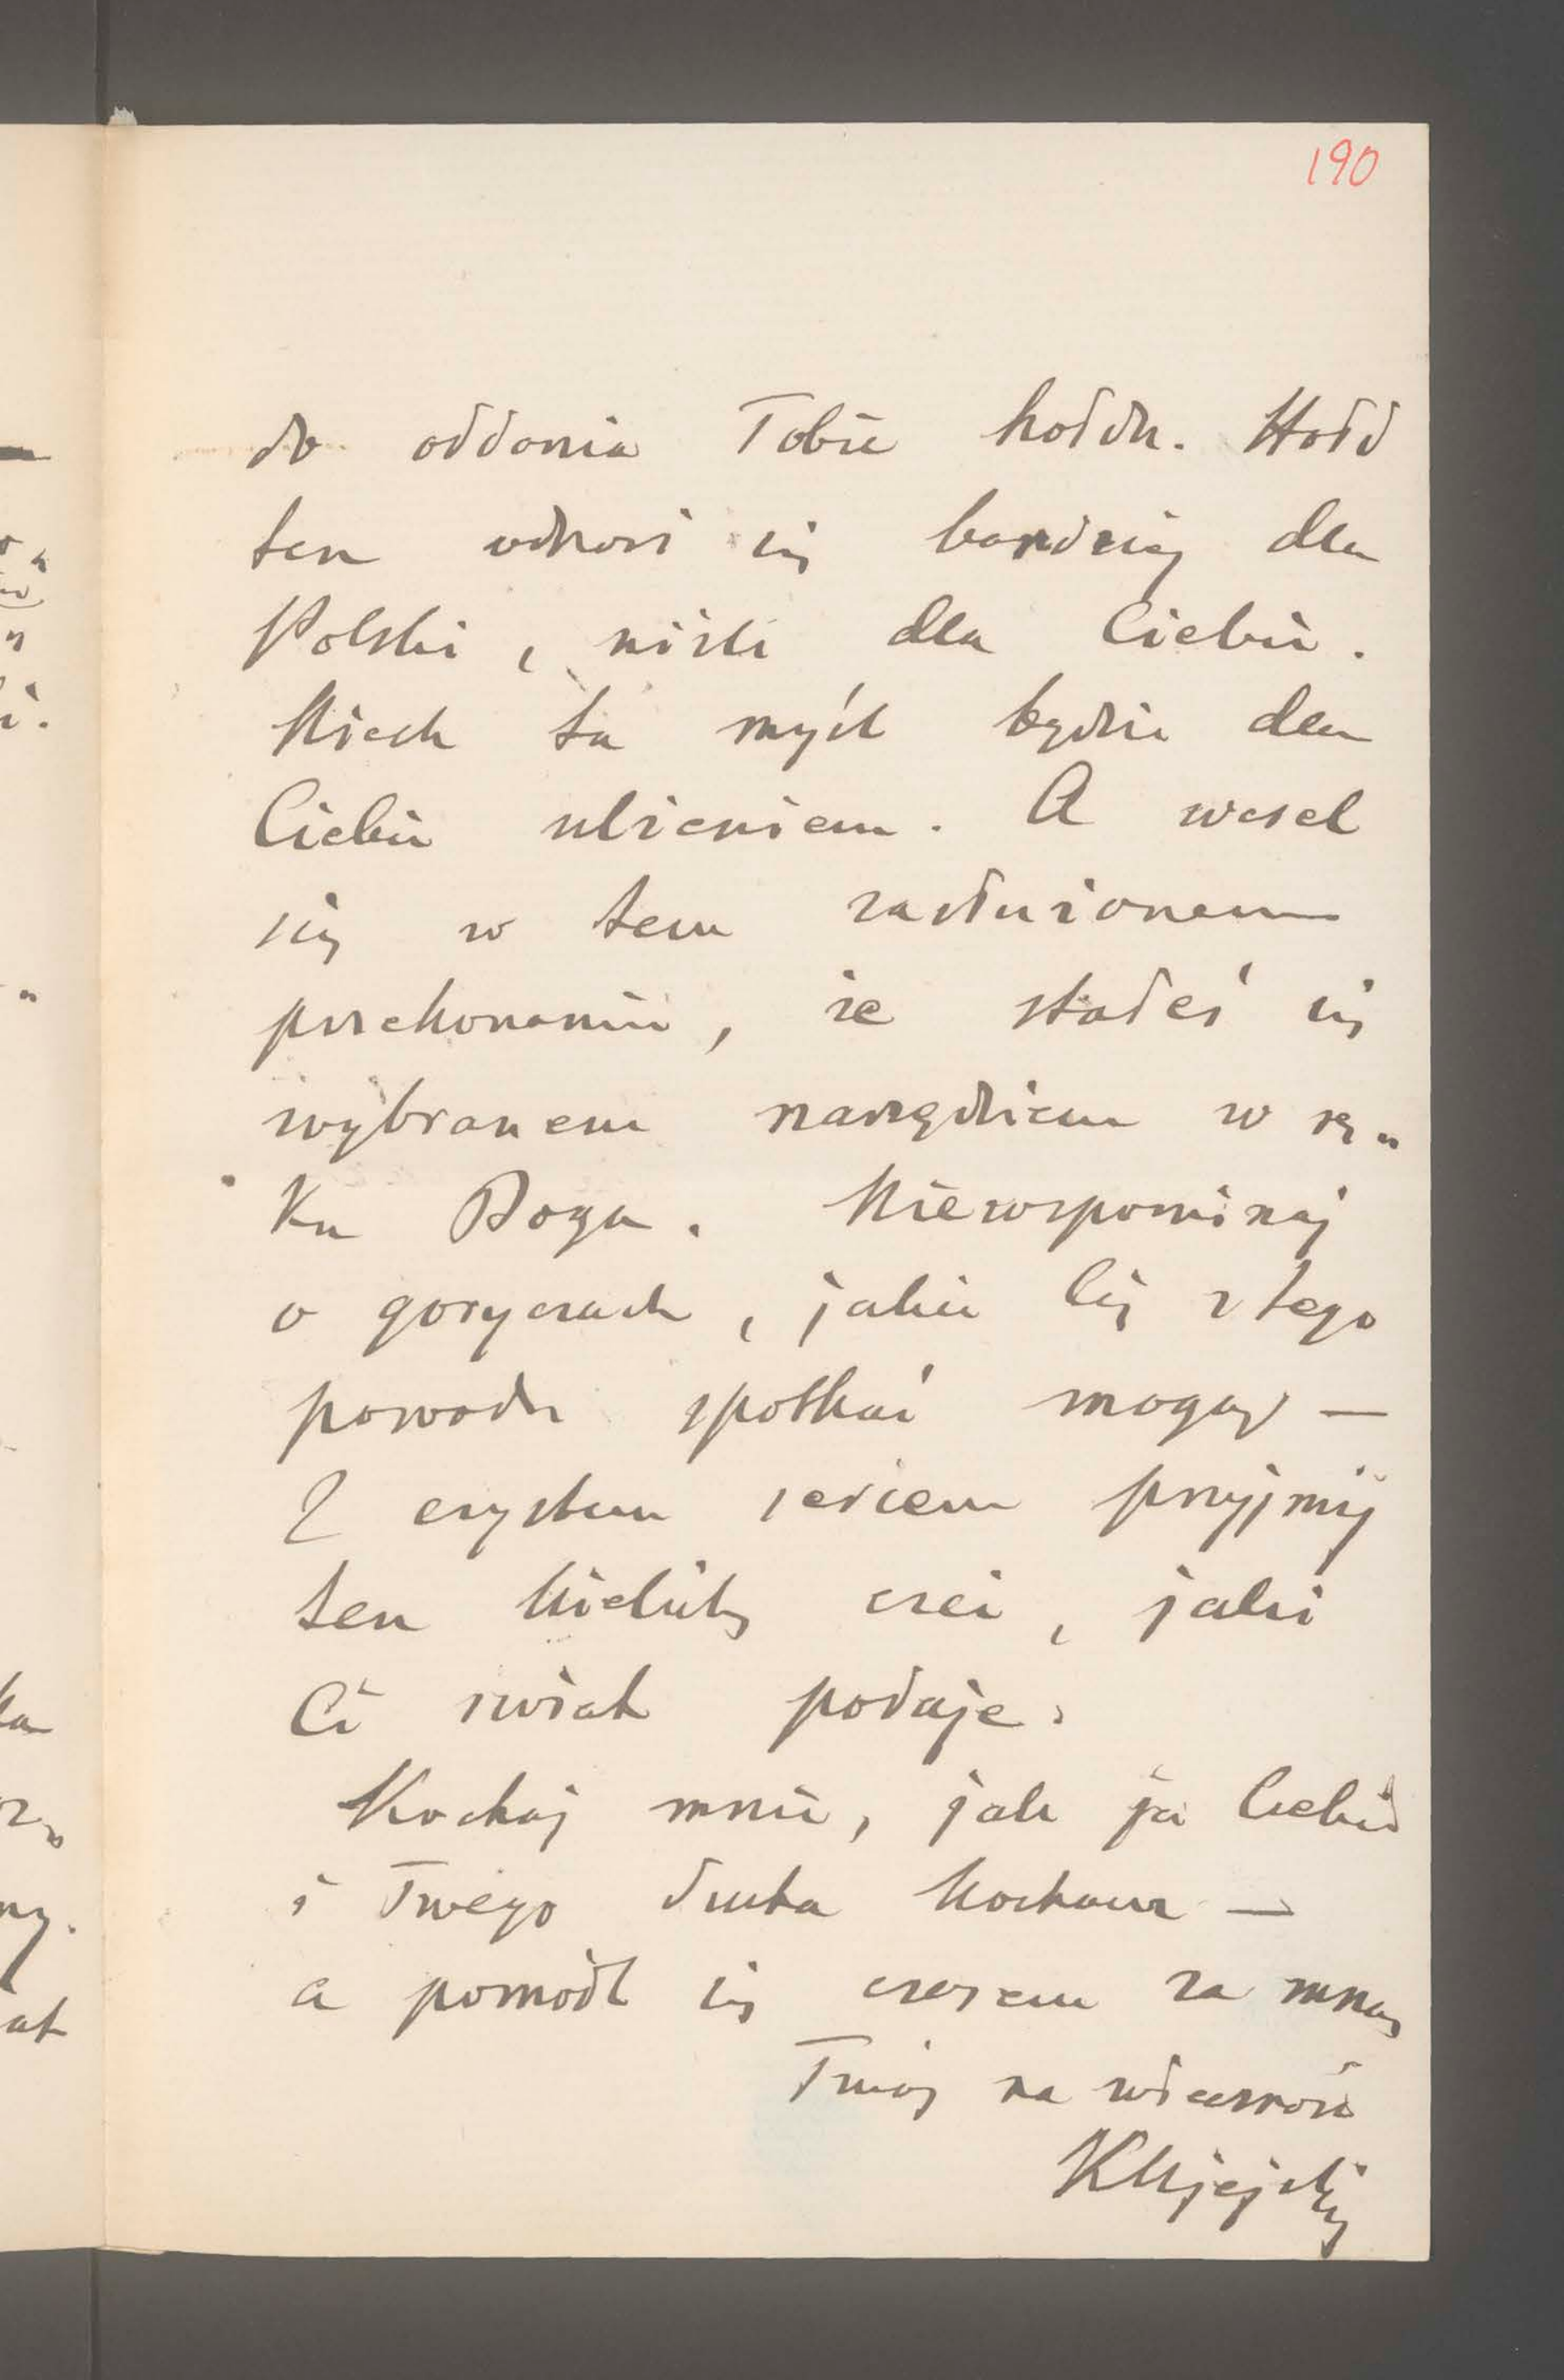 190
do oddania Tobie hołdu. Hołd
ten odnosi się bardziej dla
Polski, niżli dla Ciebie.
Niech ta myśl będzie dla
Ciebie ulżeniem. A wesel
się w tem zasłużonem
przekonaniu, że stałeś się
wybranem narzędziem w rę„
ku Boga. Niewspominaj
o goryczach, jakie Cię z tego
powodu spotkać mogą —
Z czystem sercem przyjmij
ten kielich czci, jaki
Ci świat podaje.
Kochaj mnie, jak ja Ciebie
i Twego ducha kocham —
a pomódl się czasem za mną
Twój na wieczność
KUjejski